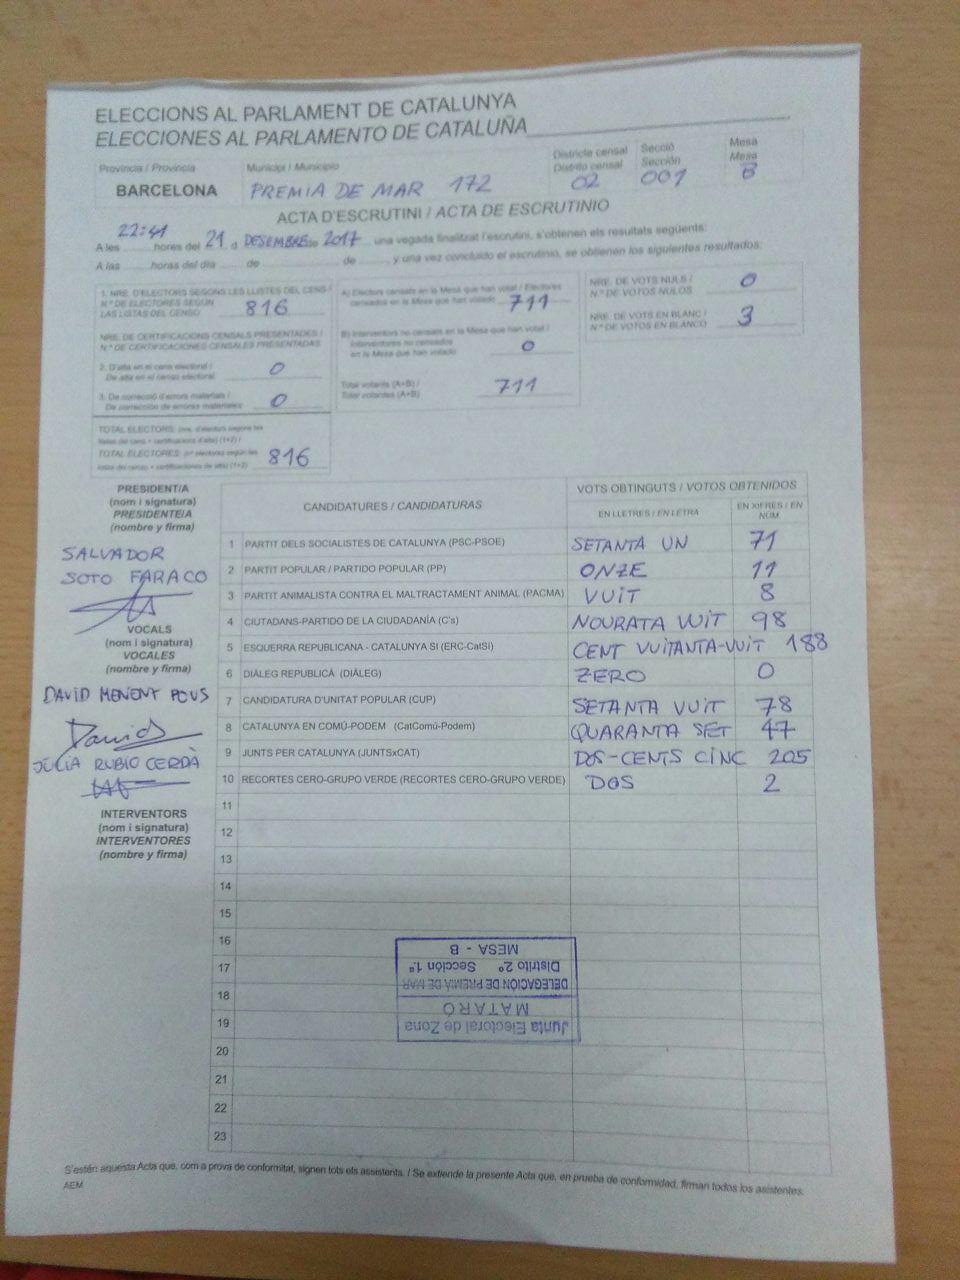 ELECCIONS AL PARLAMENT DE CATALUNYA
ELECCIONES AL PARLAMENTO DE CATALUÑA
Província / Provincia
BARCELONA
Municipi / Municipio
PREMIA DE MAR 172
Districte censal
Distrito censal
02
Secció
Sección
001
Mesa
Mesa
B
ACTA D'ESCRUTINI / ACTA DE ESCRUTINIO
22:41
A les ........ hores del 21 d DESEMBRE de 2017 una vegada finalitzat l'escrutini, s'obtenen els resultats següents:
A las ........ horas del día ...... de ...................... de ........ y una vez concluido el escrutinio, se obtienen los siguientes resultados:
1. NRE. D'ELECTORS SEGONS LES LLISTES DEL CENS /
N.º DE ELECTORES SEGÚN
LAS LISTAS DEL CENSO
816
NRE. DE CERTIFICACIONS CENSALS PRESENTADES /
N.º DE CERTIFICACIONES CENSALES PRESENTADAS
2. D'alta en el cens electoral /
De alta en el censo electoral
0
3. De correcció d'errors materials /
De corrección de errores materiales
0
TOTAL ELECTORS: (nre. d'electors segons les
llistes del cens + certificacions d'alta) (1+2) /
TOTAL ELECTORES: (nº electores según las
listas del censo + certificaciones de alta) (1+2)
816
A) Electors censats en la Mesa que han votat / Electores
censados en la Mesa que han votado
711
B) Interventors no censats en la Mesa que han votat /
Interventores no censados
en la Mesa que han votado
0
Total votants (A+B) /
Total votantes (A+B)
711
NRE. DE VOTS NULS /
N.º DE VOTOS NULOS
0
NRE. DE VOTS EN BLANC /
N.º DE VOTOS EN BLANCO
3
PRESIDENT/A
(nom i signatura)
PRESIDENTE/A
(nombre y firma)
SALVADOR
SOTO FARACO
VOCALS
(nom i signatura)
VOCALES
(nombre y firma)
DAVID MENENT POUS
David
JÚLIA RUBIO CERDÀ
INTERVENTORS
(nom i signatura)
INTERVENTORES
(nombre y firma)
CANDIDATURES / CANDIDATURAS
VOTS OBTINGUTS / VOTOS OBTENIDOS
EN LLETRES / EN LETRA
EN XIFRES / EN NÚM
1 PARTIT DELS SOCIALISTES DE CATALUNYA (PSC-PSOE) SETANTA UN 71
2 PARTIT POPULAR / PARTIDO POPULAR (PP) ONZE 11
3 PARTIT ANIMALISTA CONTRA EL MALTRACTAMENT ANIMAL (PACMA) VUIT 8
4 CIUTADANS-PARTIDO DE LA CIUDADANÍA (C's) NOURATA VUIT 98
5 ESQUERRA REPUBLICANA - CATALUNYA SI (ERC-CatSI) CENT VUITANTA-VUIT 188
6 DIÀLEG REPUBLICÀ (DIÀLEG) ZERO 0
7 CANDIDATURA D'UNITAT POPULAR (CUP) SETANTA VUIT 78
8 CATALUNYA EN COMÚ-PODEM (CatComú-Podem) QUARANTA SET 47
9 JUNTS PER CATALUNYA (JUNTSxCAT) DOS-CENTS CINC 205
10 RECORTES CERO-GRUPO VERDE (RECORTES CERO-GRUPO VERDE) DOS 2
11
12
13
14
15
16
17
18
19
20
21
22
23
Junta Electoral de Zona
MATARÓ
DELEGACIÓN DE PREMIÀ DE MAR
Distrito 2º Sección 1.ª
MESA - B
S'estén aquesta Acta que, com a prova de conformitat, signen tots els assistents. / Se extiende la presente Acta que, en prueba de conformidad, firman todos los asistentes.
AEM